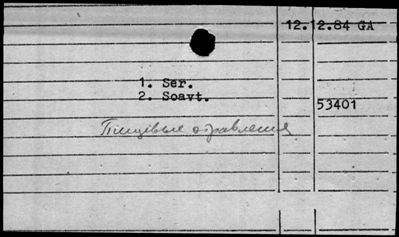 12.12.84 GA
1. Ser.
2. Soavt.
53401
Пищевые отравления